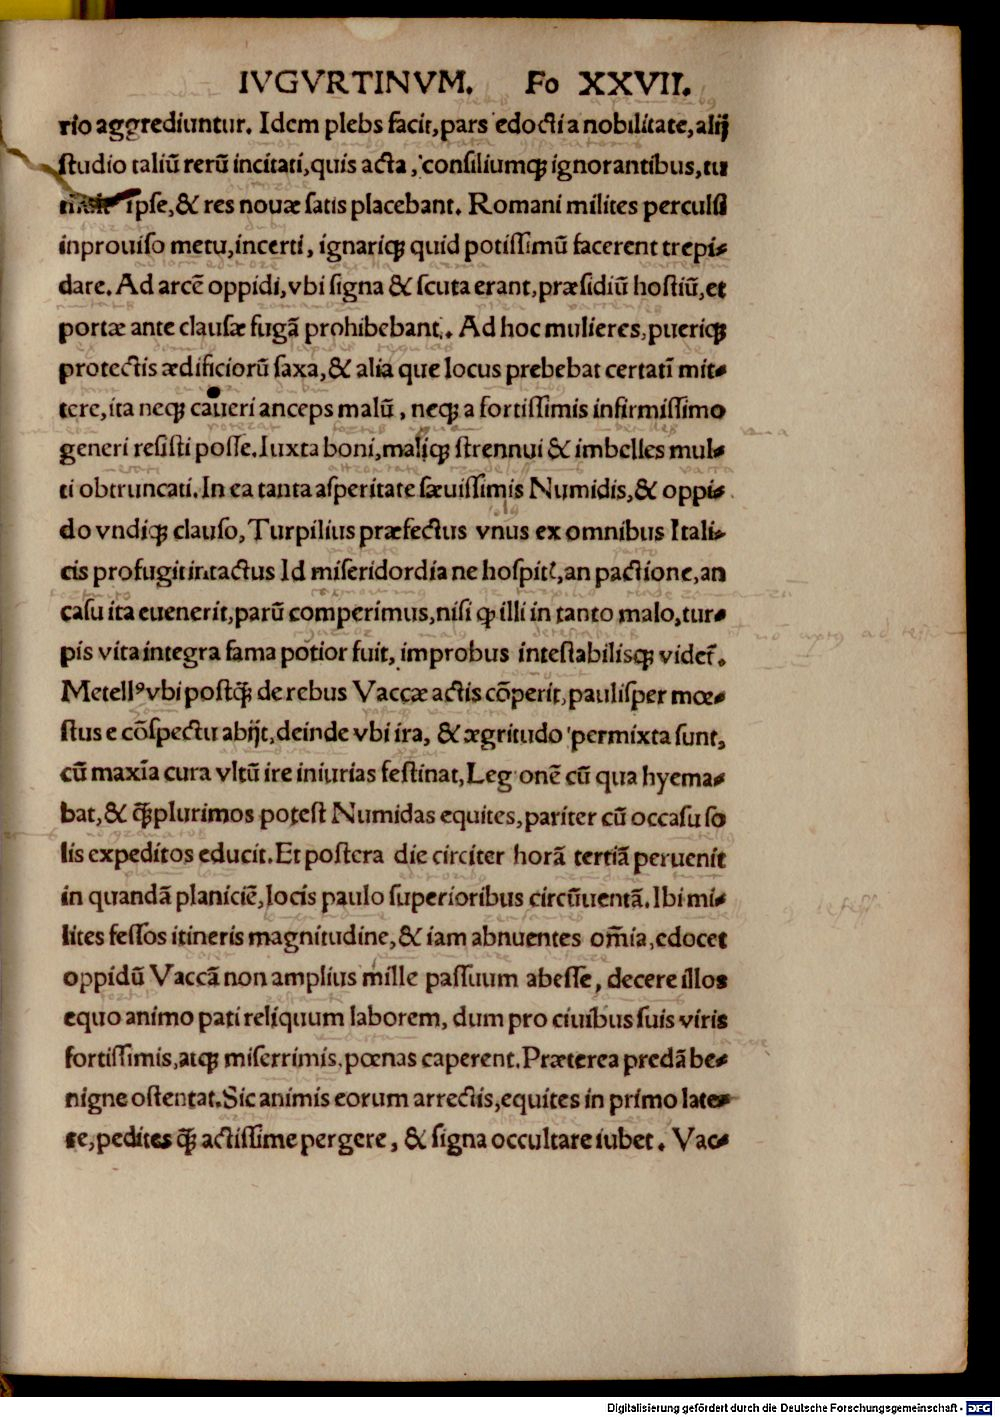 IVGVRTINVM. Fo XXVII.
rio aggrediuntur. Idem plebs facit, pars edocti a nobilitate, alij
studio taliū rerū incitati, quis acta, consiliumqꝫ ignorantibus, tu
ipse, & res nouæ satis placebant. Romani milites perculsi
inprouiso metu, incerti, ignariqꝫ quid potissimū facerent trepi-
dare. Ad arcē oppidi, vbi signa & scuta erant, præsidiū hostiū, et
portæ ante clausæ fugā prohibebant. Ad hoc mulieres, pueriqꝫ
protectis ædificiorū saxa, & alia que locus prebebat certatī mit-
tere, ita neqꝫ caueri anceps malū, neqꝫ a fortissimis infirmissimo
generi resisti posse. Iuxta boni, maliqꝫ strennui & imbelles mul-
ti obtruncati. In ea tanta asperitate sæuissimis Numidis, & oppi-
do vndiqꝫ clauso, Turpilius præfectus vnus ex omnibus Itali-
cis profugit intactus Id miseridordia ne hospitꝭ, an pactione, an
casu ita euenerit, parū comperimus, nisi ꝙ illi in tanto malo, tur-
pis vita integra fama potior fuit, improbus intestabilisqꝫ videt̄.
Metellꝰ vbi postꝙ̄ de rebus Vaccæ actis cōperit, paulisper mœ-
stus e cōspectu abijt, deinde vbi ira, & ægritudo permixta sunt,
cū maxīa cura vltū ire iniurias festinat, Leg onē cū qua hyema-
bat, & ꝙ̄ plurimos potest Numidas equites, pariter cū occasu so
lis expeditos educit. Et postera die circiter horā tertiā peruenit
in quandā planiciē, locis paulo superioribus circūuentā. Ibi mi-
lites fessos itineris magnitudine, & iam abnuentes om̄ia, edocet
oppidū Vaccā non amplius mille passuum abesse, decere illos
equo animo pati reliquum laborem, dum pro ciuibus suis viris
fortissimis, atqꝫ miserrimis, pœnas caperent. Præterea predā be-
nigne ostentat. Sic animis eorum arrectis, equites in primo late-
re, pedites ꝙ̄ actissime pergere, & signa occultare iubet. Vac-
Digitalisierung gefördert durch die Deutsche Forschungsgemeinschaft - DFG